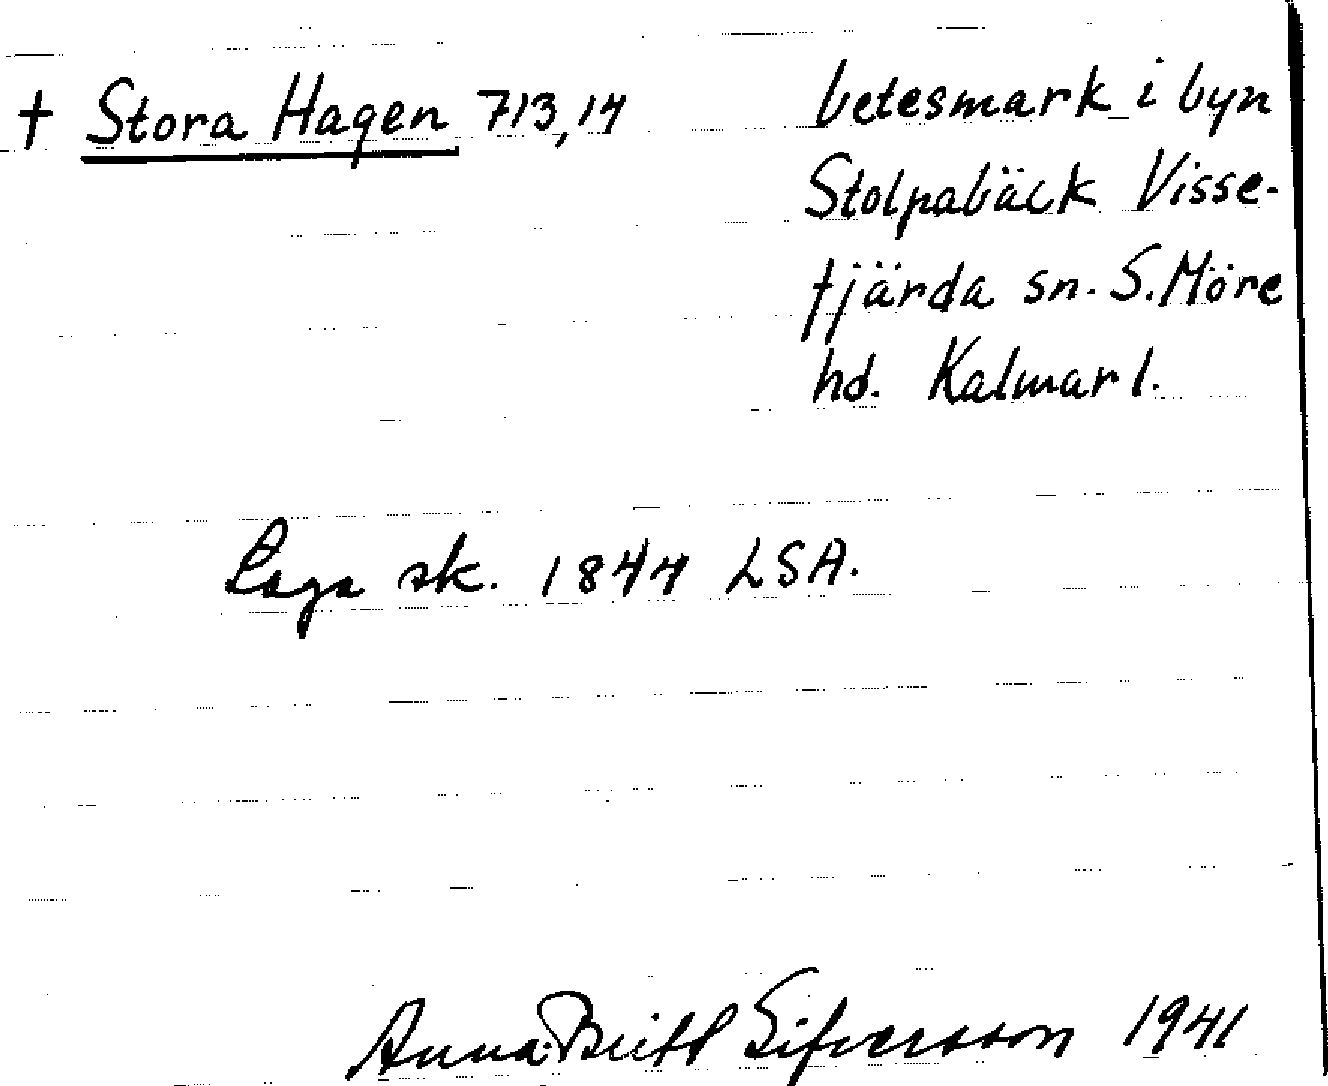 † Stora Hagen 713,14 betesmark i byn
Stolpabäck Visse-
fjärda sn. S. Möre
hd. Kalmar l.
Laga sk. 1844 LSA.
Anna-Britt Sifversson 1941